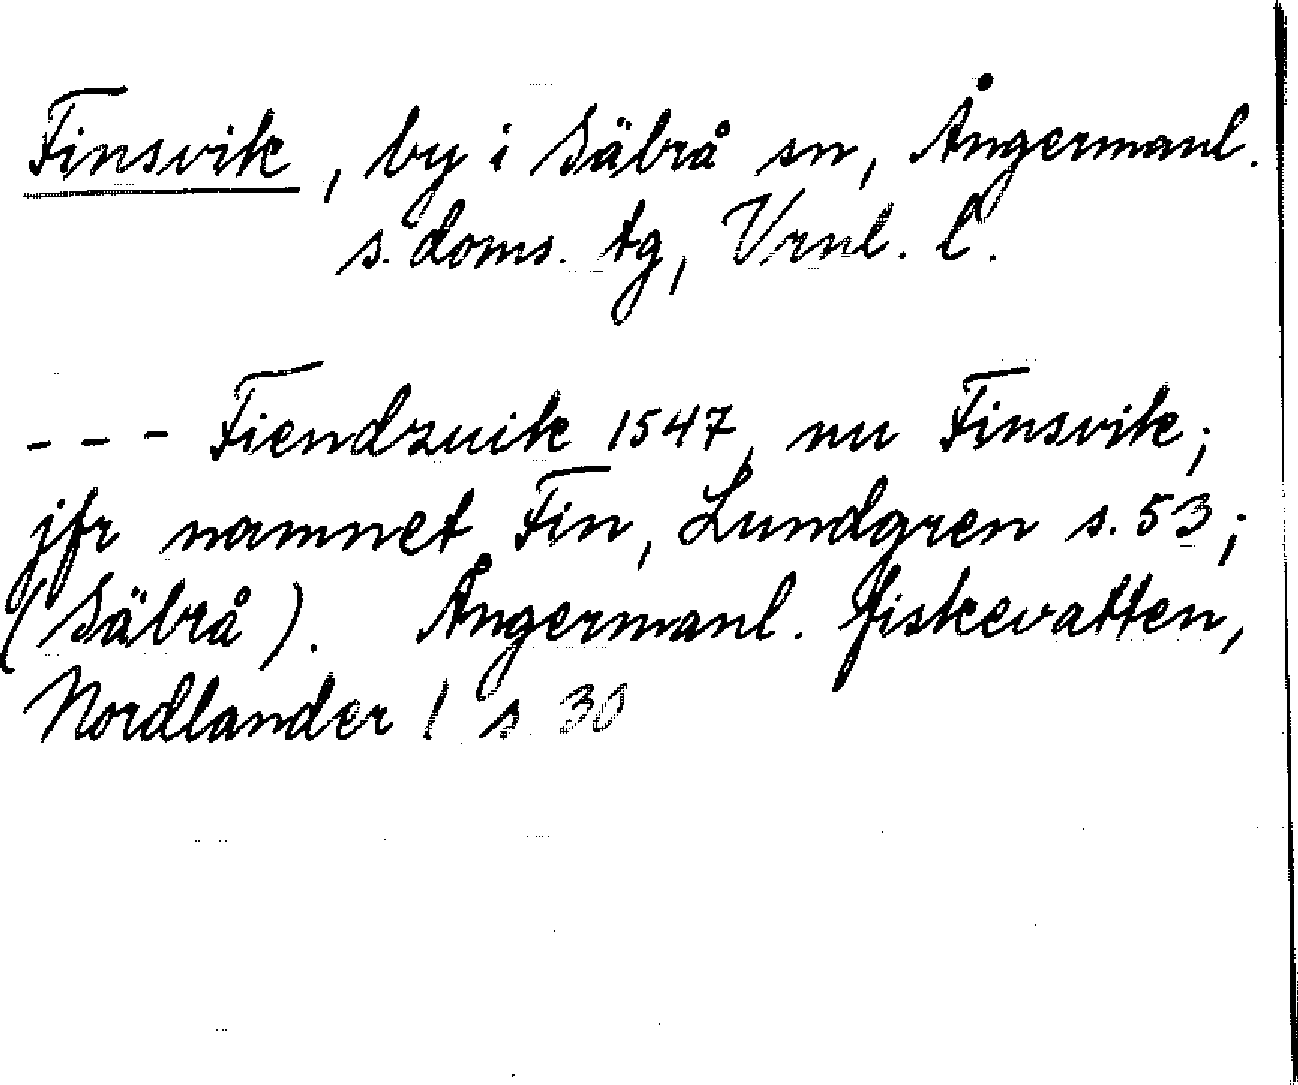 Finsvik, by i Säbrå sn, Ångermanl.
s. doms. tg, Vrnl. l.
--- Fiendzuik 1547, nu Finsvik;
jfr namnet Fin, Lundgren s. 53;
(Säbrå). Ångermanl. fiskevatten,
Nordlander / s 30